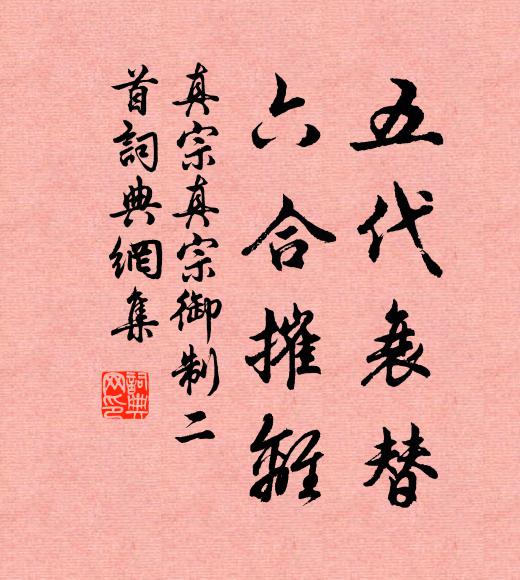 五代衰替
六合摧離
真宗真宗御制二
首詞典網集
詞典
網印